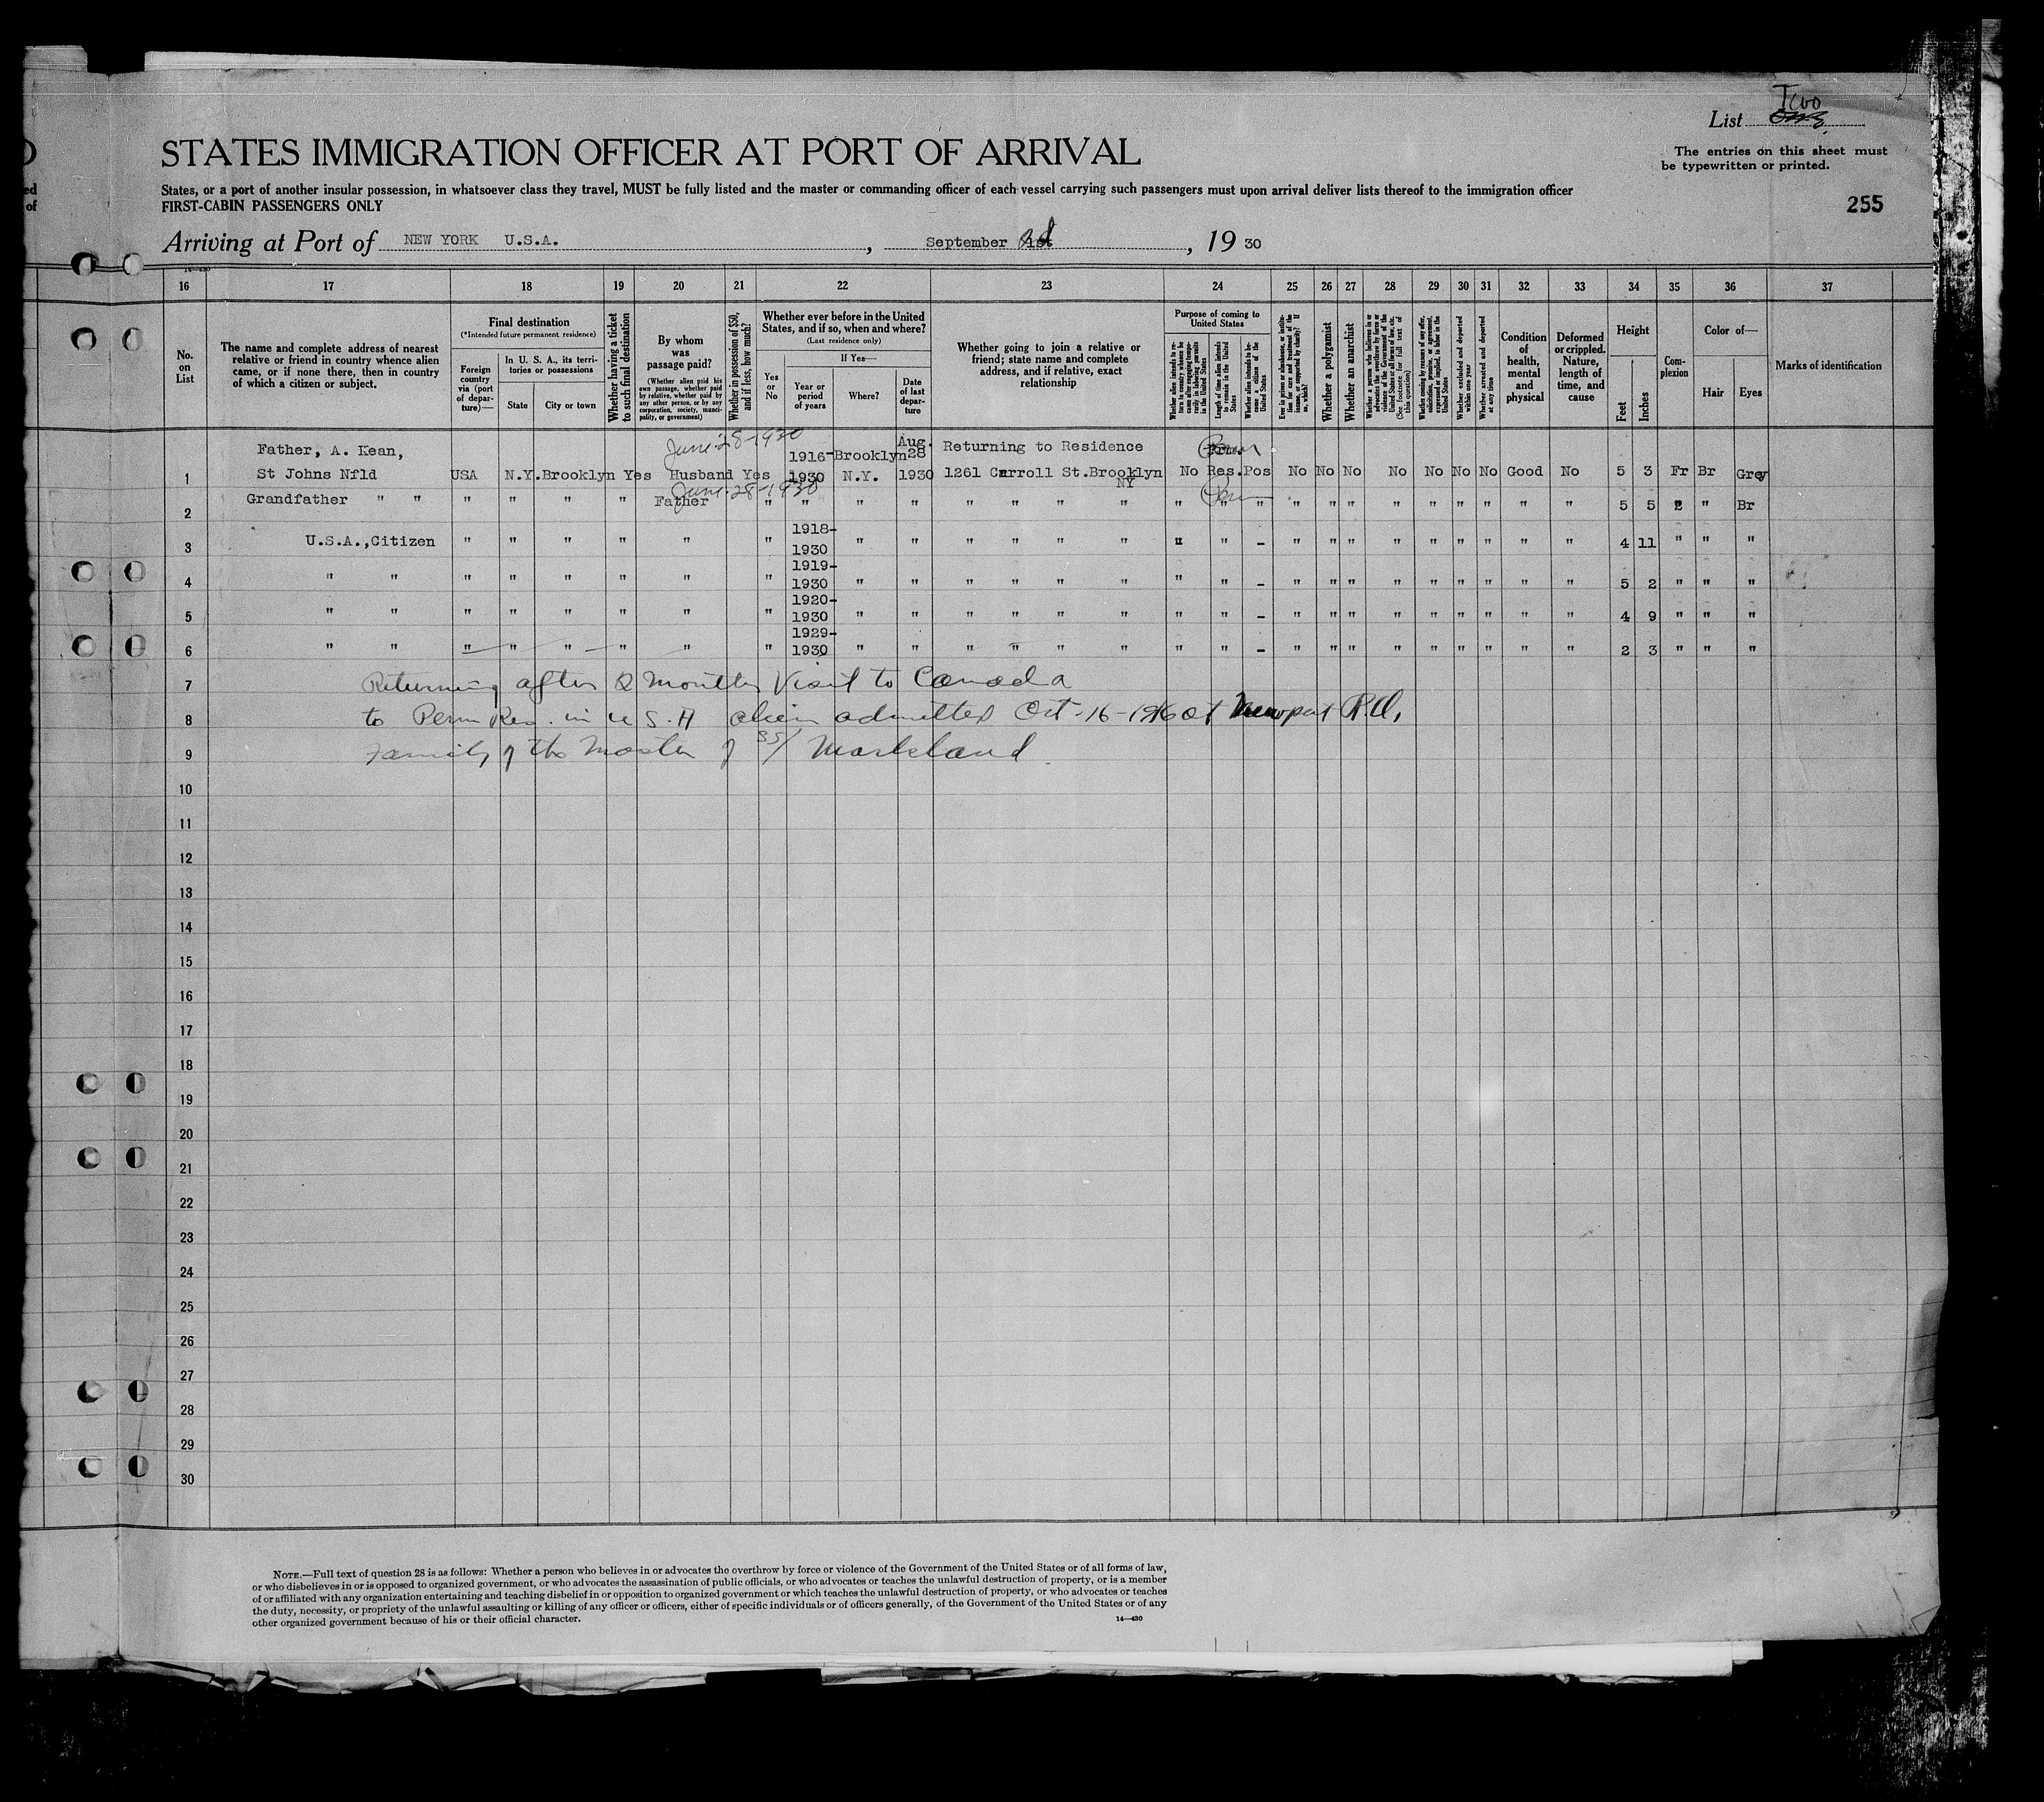 Two
List One
STATES IMMIGRATION OFFICER AT PORT OF ARRIVAL
The entries on this sheet must
be typewritten or printed.
States, or a port of another insular possession, in whatsoever class they travel, MUST be fully listed and the master or commanding officer of each vessel carrying such passengers must upon arrival deliver lists thereof to the immigration officer
FIRST-CABIN PASSENGERS ONLY
255
Arriving at Port of NEW YORK U.S.A. , September 1st 2d , 19 30
16 17 18 19 20 21 22 23 24 25 26 27 28 29 30 31 32 33 34 35 36 37
No. on List
The name and complete address of nearest relative or friend in country whence alien came, or if none there, then in country of which a citizen or subject.
Final destination
(*Intended future permanent residence)
Foreign country via (port of departure)—
In U. S. A., its territories or possessions
State
City or town
Whether having a ticket to such final destination
By whom was passage paid?
(Whether alien paid his own passage, whether paid by relative, whether paid by any other person, or by any corporation, society, municipality, or government)
Whether in possession of $50, and if less, how much?
Whether ever before in the United States, and if so, when and where?
(Last residence only)
Yes or No
If Yes—
Year or period of years
Where?
Date of last departure
Whether going to join a relative or friend; state name and complete address, and if relative, exact relationship
Purpose of coming to United States
Whether alien intends to return to country whence he came after engaging temporarily in laboring pursuits in the United States
Length of time alien intends to remain in the United States
Whether alien intends to become a citizen of the United States
Ever in prison or almshouse, or institution for care and treatment of the insane, or supported by charity? If so, which?
Whether a polygamist
Whether an anarchist
Whether a person who believes in or advocates the overthrow by force or violence of the Government of the United States or all forms of law, etc. (See footnote for full text of this question)
Whether coming by reason of any offer, solicitation, promise, or agreement, expressed or implied, to labor in the United States
Whether excluded and deported within one year
Whether arrested and deported at any time
Condition of health, mental and physical
Deformed or crippled. Nature, length of time, and cause
Height
Feet
Inches
Complexion
Color of—
Hair
Eyes
Marks of identification
June-28-1930
Father, A. Kean, 1916- Brooklyn Aug. 28 Returning to Residence
1 St Johns Nfld USA N.Y. Brooklyn Yes Husband Yes 1930 N.Y. 1930 1261 Carroll St. Brooklyn NY No Res. Pos No No No No No No No Good No 5 3 Fr Br Grey
June-28-1930
2 Grandfather " " " " " " Father " " " " " " " " " " " " " " " " " " " " 5 5 " " Br
1918-
3 U.S.A., Citizen " " " " " " 1930 " " " " " " " " - " " " " " " " " " 4 11 " " "
1919-
4 " " " " " " " " 1930 " " " " " " " " - " " " " " " " " " 5 2 " " "
1920-
5 " " " " " " " " 1930 " " " " " " " " - " " " " " " " " " 4 9 " " "
1929-
6 " " " " " " " " 1930 " " " " " " " " - " " " " " " " " " 2 3 " " "
7 Returning after 2 months visit to Canada
8 to Perm Res. in U S. A alien admitted Oct-16-1916 at Newport R.I.
9 Family of the Master of SS/ Markland
10
11
12
13
14
15
16
17
18
19
20
21
22
23
24
25
26
27
28
29
30
NOTE.—Full text of question 28 is as follows: Whether a person who believes in or advocates the overthrow by force or violence of the Government of the United States or of all forms of law,
or who disbelieves in or is opposed to organized government, or who advocates the assassination of public officials, or who advocates or teaches the unlawful destruction of property, or is a member
of or affiliated with any organization entertaining and teaching disbelief in or opposition to organized government or which teaches the unlawful destruction of property, or who advocates or teaches
the duty, necessity, or propriety of the unlawful assaulting or killing of any officer or officers, either of specific individuals or of officers generally, of the Government of the United States or of any
other organized government because of his or their official character.
14—430